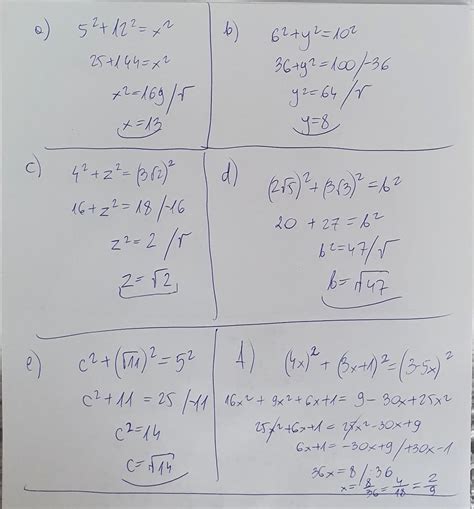 a) 5²+12²=x²
25+144=x²
x²=169/√
x=13
b) 6²+y²=10²
36+y²=100/-36
y²=64/√
y=8
c) 4²+z²=(3√2)²
16+z²=18/-16
z²=2/√
z=√2
d) (2√5)²+(3√3)²=b²
20+27=b²
b²=47/√
b=√47
e) c²+(√11)²=5²
c²+11=25/-11
c²=14
c=√14
f) (4x)²+(3x+1)²=(3-5x)²
16x²+9x²+6x+1=9-30x+25x²
25x²+6x+1=25x²-30x+9
6x+1=-30x+9/+30x-1
36x=8/:36
x=8/36=4/18=2/9